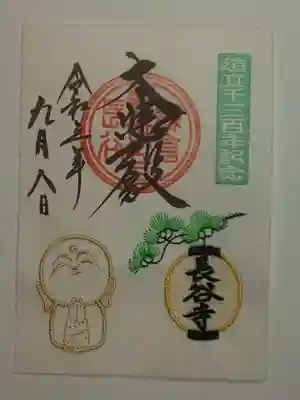 造立千三百年記念
大悲殿
令和三年
九月八日
長谷寺